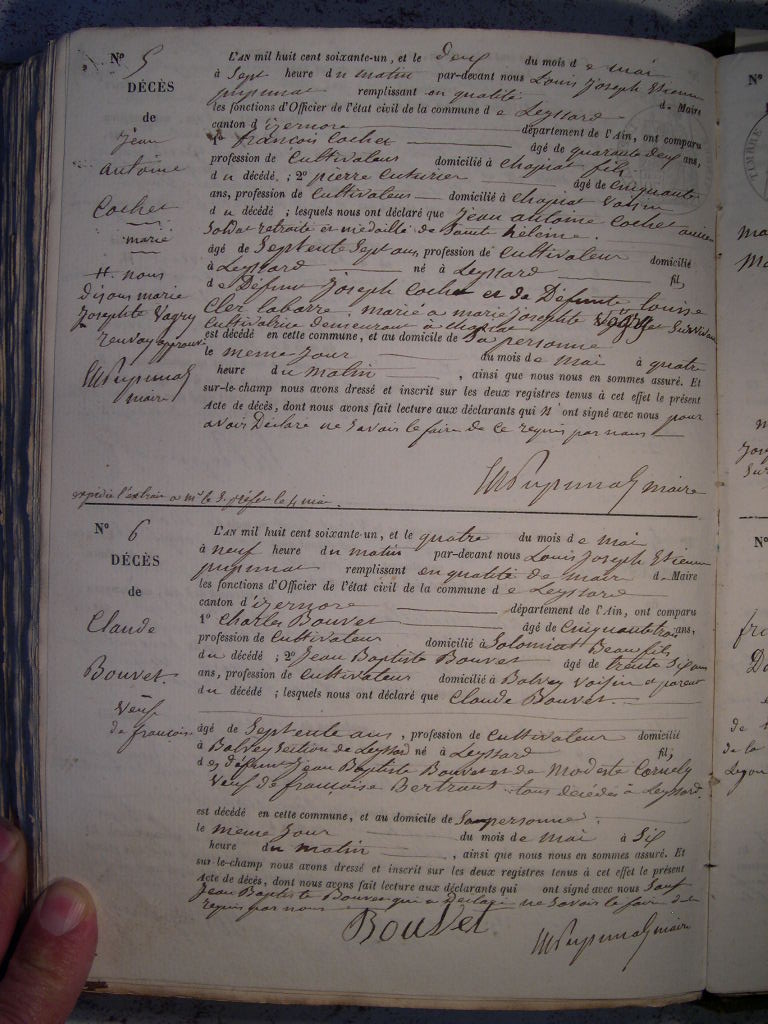 N° 5
DÉCÈS
de
Jean
antoine
Cochet
marié
#. nous
disons marie
Josephte Vagry
renvoy approuvé
maire
L'AN mil huit cent soixante-un, et le deux du mois de mai
à Sept heure du matin par-devant nous Louis Joseph Etienne
pupunat remplissant en qualité de Maire
les fonctions d'Officier de l'état civil de la commune de Leyssard
canton d'izernore département de l'Ain, ont comparu
1° francois Cochet âgé de quarante deux ans,
profession de Cultivateur domicilié à Chapiat fils
du décédé ; 2° pierre Cuturier âgé de Cinquante
ans, profession de Cultivateur domicilié à chapiat Voisin
du décédé ; lesquels nous ont déclaré que Jean antoine Cochet ancien
Soldat retraité et médaillé de Sainte hélène.
âgé de Septente Sept ans, profession de Cultivateur domicilié
à Leyssard né à Leyssard fils
de Défunt Joseph Cochet et de Défunte Louise
Cler labarre. marié a marie Josephte Vagry et Survivante
Cultivatrice demeurant à chapiat
est décédé en cette commune, et au domicile de Sa personne
le meme Jour du mois de mai à quatre
heure du matin , ainsi que nous nous en sommes assuré. Et
sur-le-champ nous avons dressé et inscrit sur les deux registres tenus à cet effet le présent
Acte de décès, dont nous avons fait lecture aux déclarants qui n'ont signé avec nous pour
avoir Déclaré ne Savoir le faire de ce requis par nous
maire
expédié l'extrait a Mr le S. préfet le 4 mai.
N° 6
DÉCÈS
de
Claude
Bouvet.
Veuf
de francoise
L'AN mil huit cent soixante-un, et le quatre du mois de mai
à neuf heure du matin par-devant nous Louis Joseph Etienne
pupunat remplissant en qualité de maire de Maire
les fonctions d'Officier de l'état civil de la commune de Leyssard
canton d'izernore département de l'Ain, ont comparu
1° Charles Bouvet âgé de Cinquante trois ans,
profession de Cultivateur domicilié à Solomiat Beau fils
du décédé ; 2° Jean Baptiste Bouvet âgé de trente Six ans
ans, profession de Cultivateur domicilié à Bolvey Voisin et parent
du décédé ; lesquels nous ont déclaré que Claude Bouvet.
âgé de Septente ans, profession de Cultivateur domicilié
à Bolvey Section de Leyssard né à Leyssard fils
des défunt Jean Baptiste Bouvet et de Modeste Cornely
Veuf de françoise Bertrand tous décédés à Leyssard.
est décédé en cette commune, et au domicile de Sa personne.
le meme Jour du mois de mai à Six
heure du matin , ainsi que nous nous en sommes assuré. Et
sur-le-champ nous avons dressé et inscrit sur les deux registres tenus à cet effet le présent
Acte de décès, dont nous avons fait lecture aux déclarants qui ont signé avec nous Sauf
Jean Baptiste Bouvet qui a Déclaré ne Savoir le faire de ce
requis par nous
Bouvet
maire
N°
TIMBRE
N°